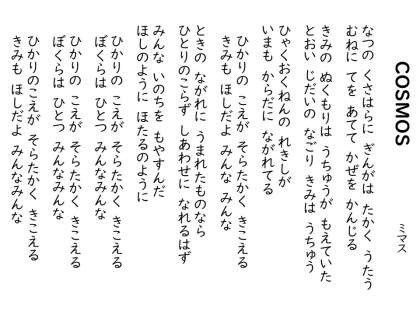 COSMOS
ミマス
なつの くさはらに ぎんがは たかく うたう
むねに てを あてて かぜを かんじる
きみの ぬくもりは うちゅうが もえていた
とおい じだいの なごり きみは うちゅう
ひゃくおくねんの れきしが
いまも からだに ながれてる
ひかりの こえが そらたかく きこえる
きみも ほしだよ みんな みんな
ときの ながれに うまれたものなら
ひとりのこらず しあわせに なれるはず
みんな いのちを もやすんだ
ほしのように ほたるのように
ひかりの こえが そらたかく きこえる
ぼくらは ひとつ みんなみんな
ひかりの こえが そらたかく きこえる
ぼくらは ひとつ みんなみんな
ひかりのこえが そらたかく きこえる
きみも ほしだよ みんなみんな